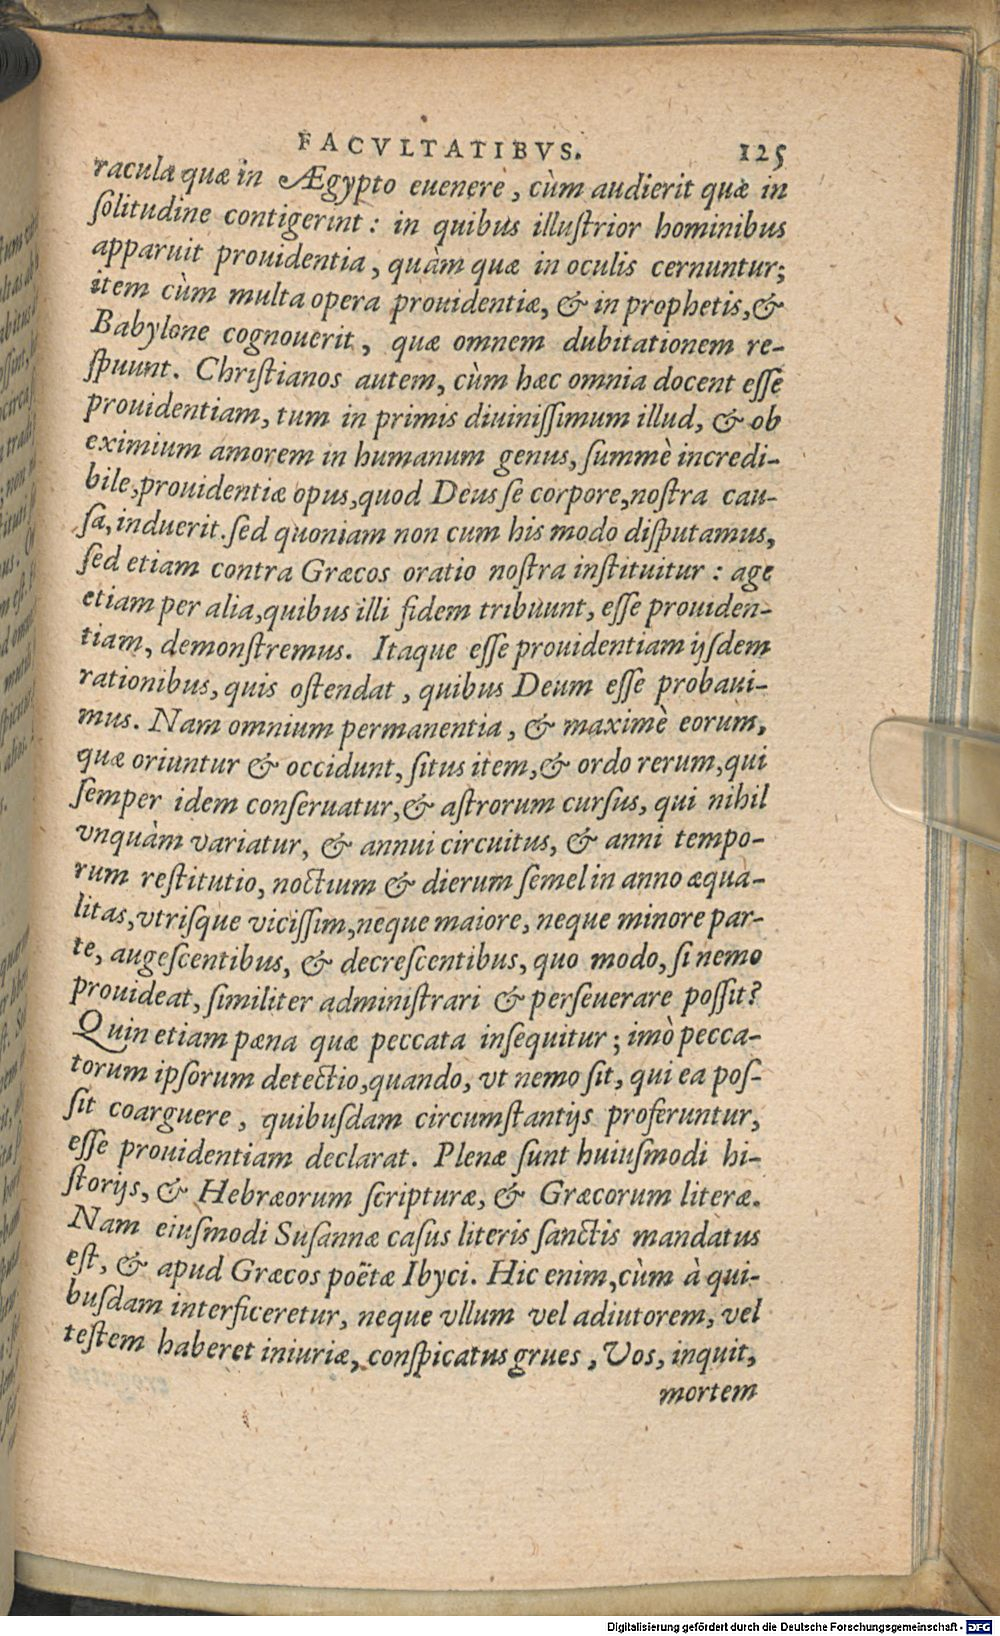 FACVLTATIBVS. 125
raculæ quæ in Ægypto euenere, cùm audierit quæ in
ſolitudine contigerint: in quibus illuſtrior hominibus
apparuit prouidentia, quàm quæ in oculis cernuntur;
item cùm multa opera prouidentiæ, & in prophetis, &
Babylone cognouerit, quæ omnem dubitationem re-
ſpuunt. Chriſtianos autem, cùm hæc omnia docent eſſe
prouidentiam, tum in primis diuiniſſimum illud, & ob
eximium amorem in humanum genus, ſummè incredi-
bile, prouidentiæ opus, quod Deus ſe corpore, noſtra cau-
ſa, induerit. ſed quoniam non cum his modo diſputamus,
ſed etiam contra Græcos oratio noſtra inſtituitur: age
etiam per alia, quibus illi fidem tribuunt, eſſe prouiden-
tiam, demonſtremus. Itaque eſſe prouidentiam ijſdem
rationibus, quis oſtendat, quibus Deum eſſe probaui-
mus. Nam omnium permanentia, & maximè eorum,
quæ oriuntur & occidunt, ſitus item, & ordo rerum, qui
ſemper idem conſeruatur, & aſtrorum curſus, qui nihil
vnquàm variatur, & annui circuitus, & anni tempo-
rum reſtitutio, noctium & dierum ſemel in anno æqua-
litas, vtriſque viciſſim, neque maiore, neque minore par-
te, augeſcentibus, & decreſcentibus, quo modo, ſi nemo
prouideat, ſimiliter adminiſtrari & perſeuerare poſſit?
Quin etiam pæna quæ peccata inſequitur; imò pecca-
torum ipſorum detectio, quando, vt nemo ſit, qui ea poſ-
ſit coarguere, quibuſdam circumſtantijs proferuntur,
eſſe prouidentiam declarat. Plenæ ſunt huiuſmodi hi-
ſtorijs, & Hebræorum ſcripturæ, & Græcorum literæ.
Nam eiuſmodi Suſannæ caſus literis ſanctis mandatus
eſt, & apud Græcos poëtæ Ibyci. Hic enim, cùm à qui-
buſdam interficeretur, neque vllum vel adiutorem, vel
teſtem haberet iniuriæ, conſpicatus grues, Vos, inquit,
mortem
Digitalisierung gefördert durch die Deutsche Forschungsgemeinschaft - DFG